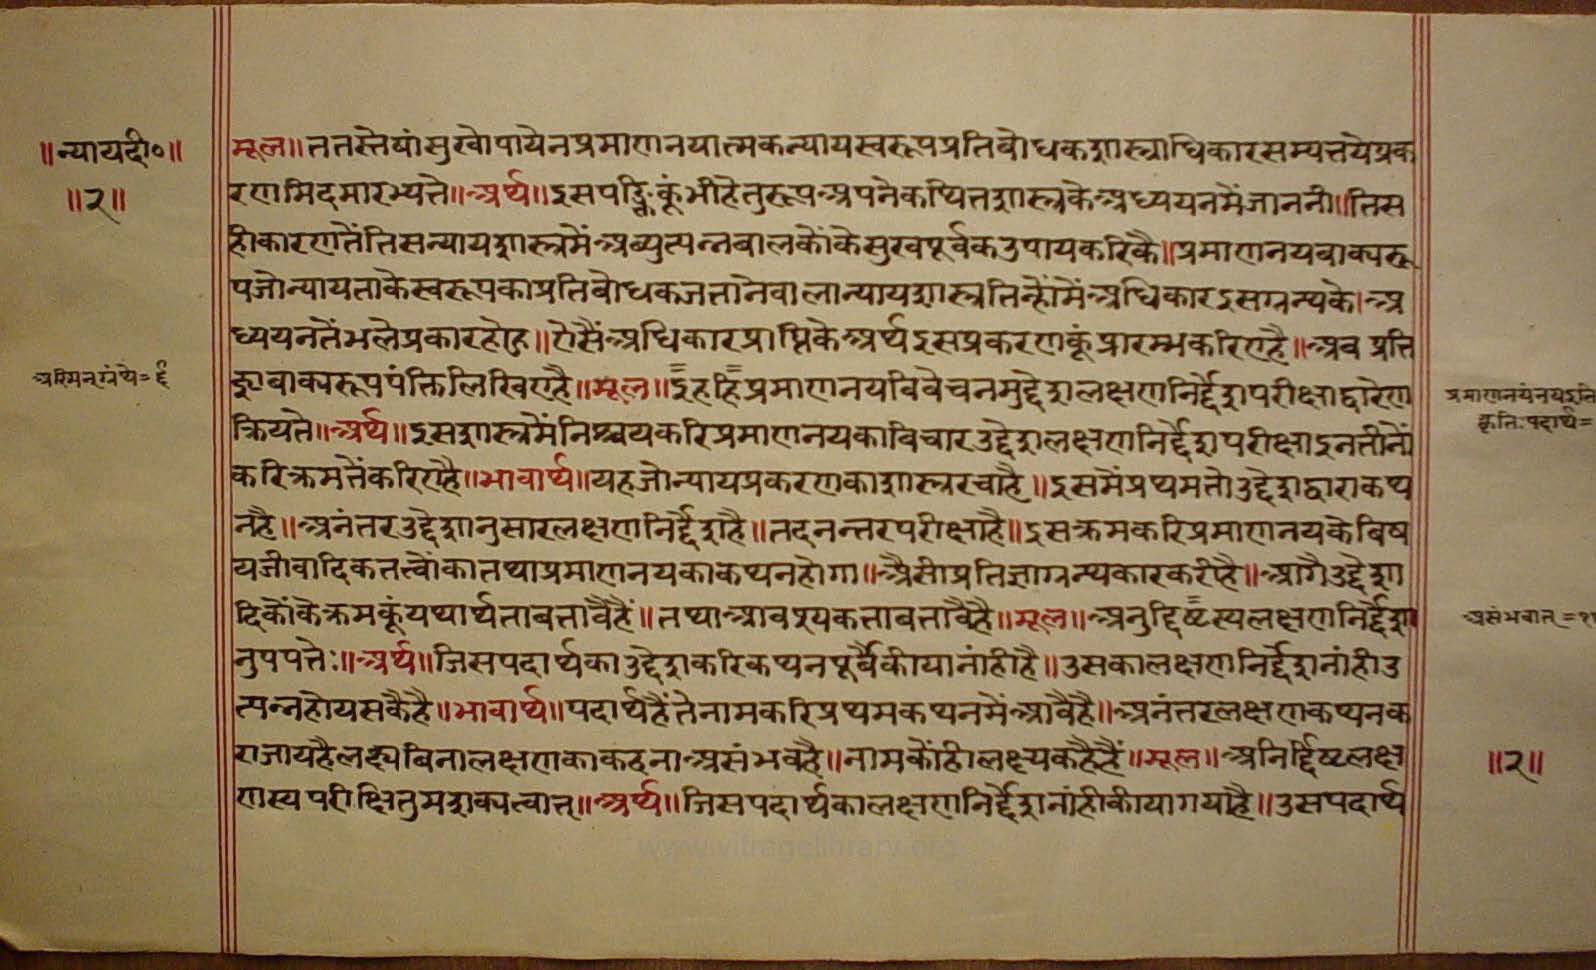 ॥न्यायदी०॥
॥२॥
मूल॥ततस्तेषांसुखोपायेनप्रमाणनयात्मकन्यायस्वरूपप्रतिबोधकशास्त्राधिकारसम्पत्तयेप्रक
रणमिदमारभ्यते॥अर्थ॥इसपङ्क्तिकूंभीहेतुरूपअपनेकथितशास्त्रकेअध्ययनमेंजाननी॥तिस
हीकारणतैंतिसन्यायशास्त्रमेंअव्युत्पन्नबालकोंकेसुखपूर्वकउपायकरिकै॥प्रमाणनयवाक्यरू
पजोन्यायताकेस्वरूपकाप्रतिबोधकजतानेवालान्यायशास्त्रतिन्होंमेंअधिकारइसग्रन्थके।अ
ध्ययनतेंभलेप्रकारहोइ॥ऐसैंअधिकारप्राप्तिकेअर्थइसप्रकरणकूंप्रारम्भकरिएहै॥अबप्रति
ज्ञावाक्यरूपपंक्तिलिखिएहै॥मूल॥इहहिप्रमाणनयविवेचनमुद्देशलक्षणनिर्द्देशपरीक्षाद्वारेण
अस्मिन्ग्रंथे=६
प्रमाणनयंनयइति
क्रियते॥अर्थ॥इसशास्त्रमेंनिश्चयकरिप्रमाणनयकाविचारउद्देशलक्षणनिर्द्देशपरीक्षाइनतीनों
करिक्रमतेंकरिएहै॥भावार्थ॥यहजोन्यायप्रकरणकाशास्त्ररचाहै॥इसमेंप्रथमतोउद्देशद्वाराकथ
नहै॥अनंतरउद्देशानुसारलक्षणनिर्द्देशहै॥तदनन्तरपरीक्षाहै॥इसक्रमकरिप्रमाणनयकेविष
यजीवादिकतत्वोंकातथाप्रमाणनयकाकथनहोगा॥अैसीप्रतिज्ञाग्रन्थकारकरीहै॥आगैउद्देशा
दिकोंकेक्रमकूंयथार्थताबतावैहैं॥तथाआवश्यकताबतावैहै॥मूल॥अनुद्दिष्टस्यलक्षणनिर्द्देशा
असंभवात्=११
नुपपत्तेः॥अर्थ॥जिसपदार्थकाउद्देशकरिकथनपूर्वैकीयानांहीहै॥उसकालक्षणनिर्द्देशनांहीउ
त्पन्नहोयसकैहै॥भावार्थ॥पदार्थहैंतेनामकरिप्रथमकथनमेंआवैहै॥अनंतरलक्षणकथनक
राजायहैलक्ष्यबिनालक्षणकाकहनाअसंभवहै॥नामकोंहीलक्ष्यकहैहैं॥मूल॥अनिर्द्दिष्टलक्ष
॥२॥
णस्यपरीक्षितुमशक्यत्वात्॥अर्थ॥जिसपदार्थकालक्षणनिर्द्देशनांहीकीयागयाहै॥उसपदार्थ